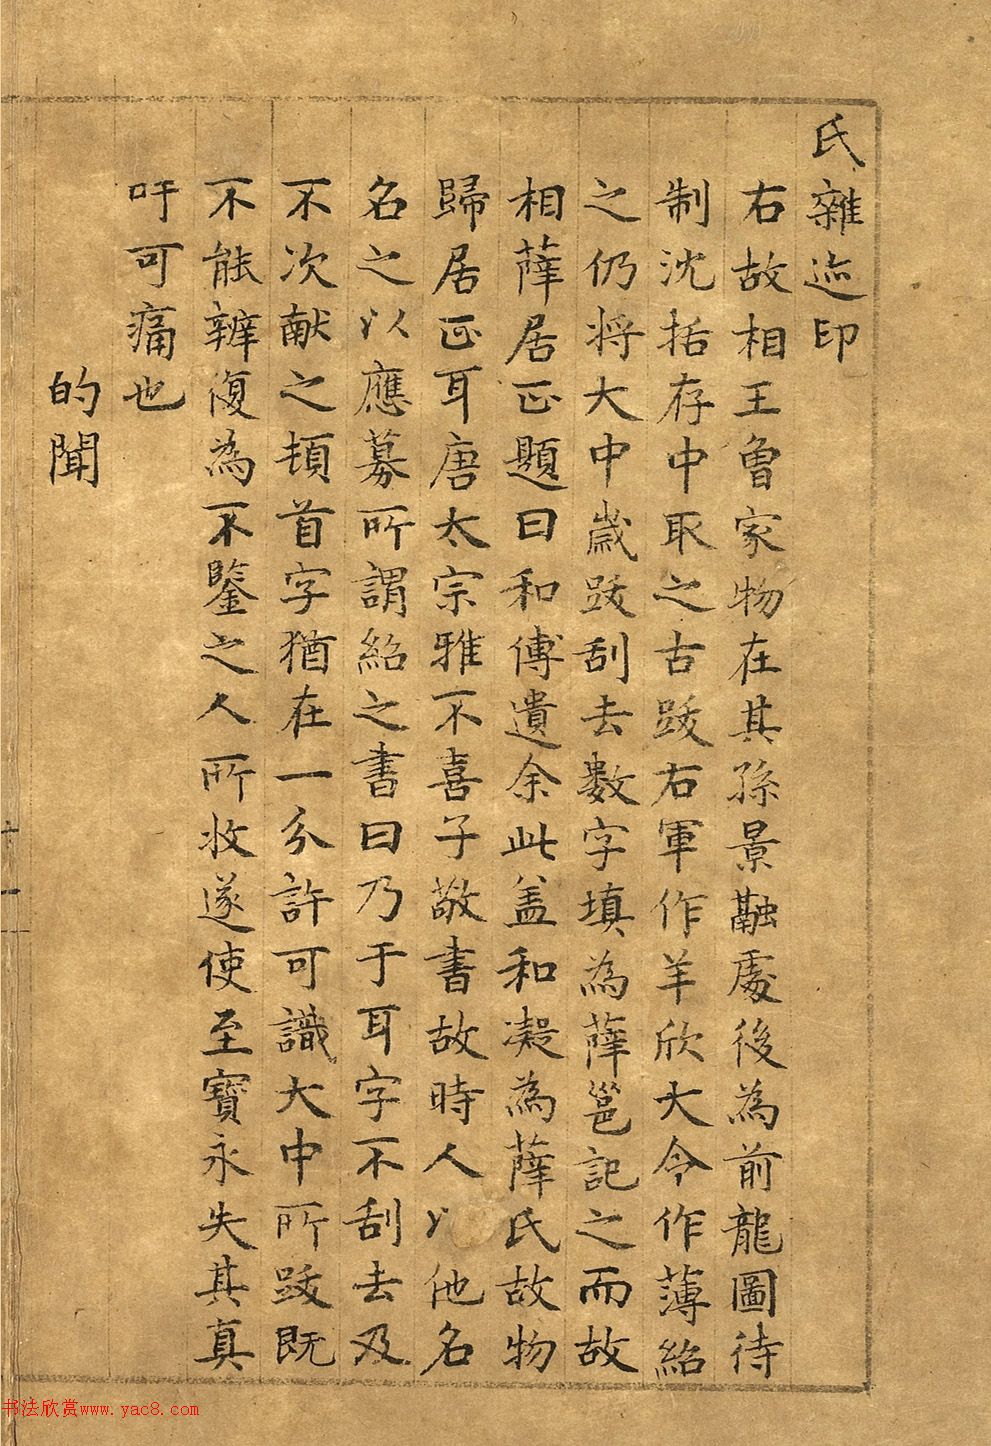 氏雜迹印
右故相王曾家物在其孫景融處後為前龍圖待
制沈括存中取之古跋右軍作羊欣大令作薄紹
之仍將大中歲跋刮去數字填為薛邕記之而故
相薛居正題曰和傅遺余此盖和凝為薛氏故物
歸居正耳唐太宗雅不喜子敬書故時人以他名
名之以應募所謂紹之書曰乃于耳字不刮去及
不次献之頓首字猶在一分許可識大中所跋既
不能辨復為不鑒之人所收遂使至寶永失其真
吁可痛也
的聞
十一
书法欣赏www.yac8.com